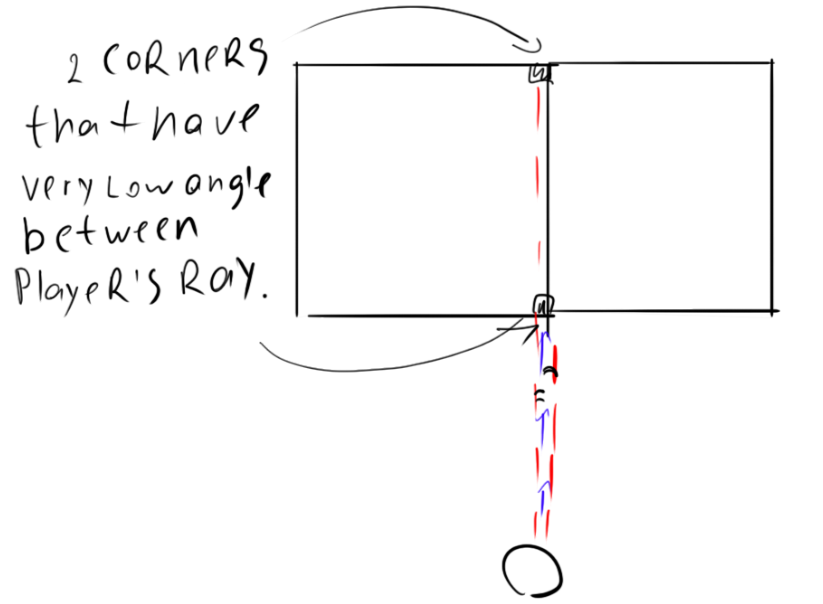 2 CORNERS
that have
very Low angle
between
PlayeR'S RaY.